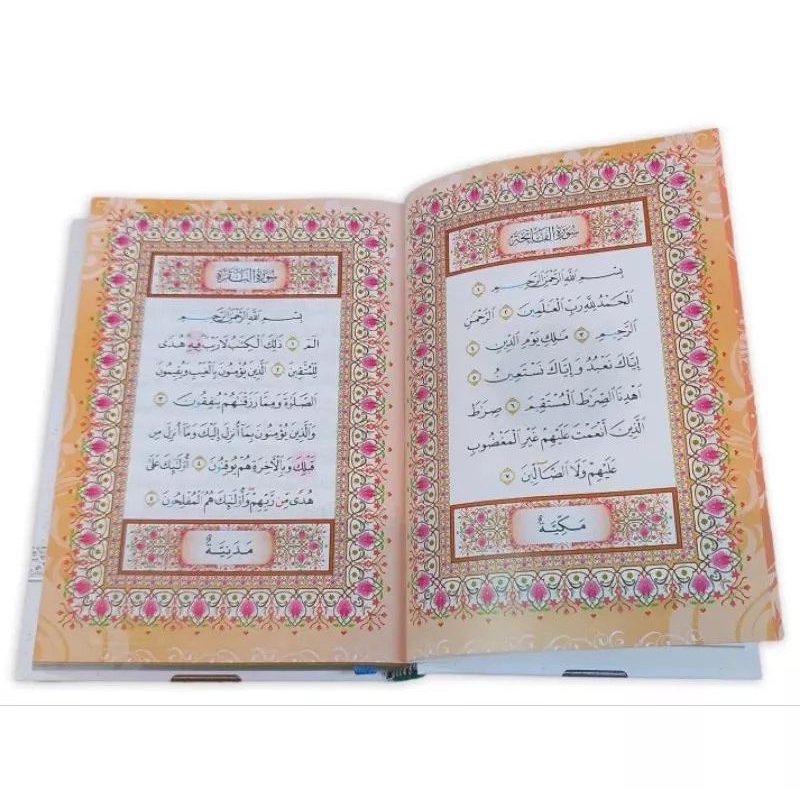 سُورَةُ الفَاتِحَةِ
بِسْمِ اللَّهِ الرَّحْمَٰنِ الرَّحِيمِ ١
الْحَمْدُ لِلَّهِ رَبِّ الْعَالَمِينَ ٢ الرَّحْمَٰنِ
الرَّحِيمِ ٣ مَالِكِ يَوْمِ الدِّينِ ٤
إِيَّاكَ نَعْبُدُ وَإِيَّاكَ نَسْتَعِينُ ٥
اهْدِنَا الصِّرَاطَ الْمُسْتَقِيمَ ٦ صِرَاطَ
الَّذِينَ أَنْعَمْتَ عَلَيْهِمْ غَيْرِ الْمَغْضُوبِ
عَلَيْهِمْ وَلَا الضَّالِّينَ ٧
مَكِّيَّةٌ
سُورَةُ البَقَرَةِ
بِسْمِ اللَّهِ الرَّحْمَٰنِ الرَّحِيمِ
الم ١ ذَٰلِكَ الْكِتَابُ لَا رَيْبَ فِيهِ هُدًى
لِلْمُتَّقِينَ ٢ الَّذِينَ يُؤْمِنُونَ بِالْغَيْبِ وَيُقِيمُونَ
الصَّلَاةَ وَمِمَّا رَزَقْنَاهُمْ يُنْفِقُونَ ٣
وَالَّذِينَ يُؤْمِنُونَ بِمَا أُنْزِلَ إِلَيْكَ وَمَا أُنْزِلَ مِنْ
قَبْلِكَ وَبِالْآخِرَةِ هُمْ يُوقِنُونَ ٤ أُولَٰئِكَ عَلَىٰ
هُدًى مِنْ رَبِّهِمْ وَأُولَٰئِكَ هُمُ الْمُفْلِحُونَ ٥
مَدَنِيَّةٌ